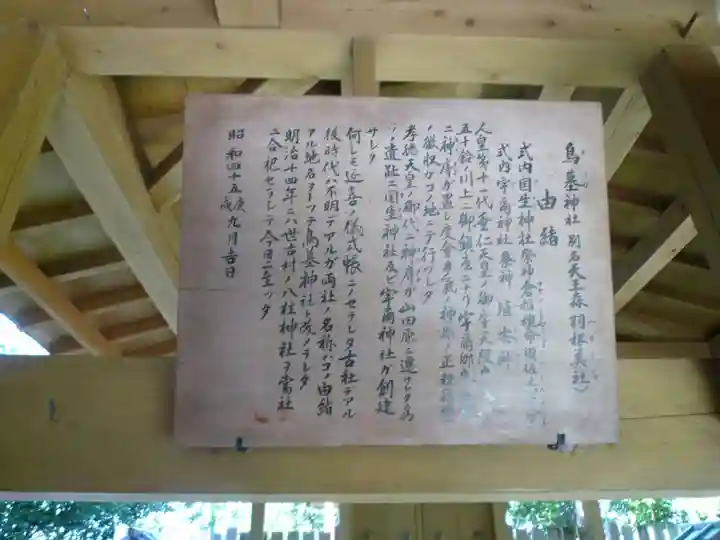 鳥墓神社 別名天王森 羽根美社)
由緒
式内国生神社 祭神
式内宇爾神社 祭神
人皇第十一代垂仁天皇ノ御宇天照
五十鈴ノ川上ニ御鎮座ニナリ宇爾郷
ニ神ノ庤ガ置レ度会
ノ徴収ガコノ地ニテ行ワレタ
孝徳天皇ノ御代ニ神庤ガ山田原ニ遷サレタ為
ソノ遺趾ニ国生神社及ビ宇爾神社ガ創建
サレタ
何レモ延喜ノ儀式帳ニノセラレタ古社デアル
後時代ハ不明デアルガ両社ノ名称ハコノ由緒
アル地名ヲトッテ鳥墓神社ト改メラレタ
明治十四年ニハ世古村ノ八柱神社ヲ当社
ニ合祀セラレテ今日ニ至ッタ
昭和四十五庚戌九月吉日